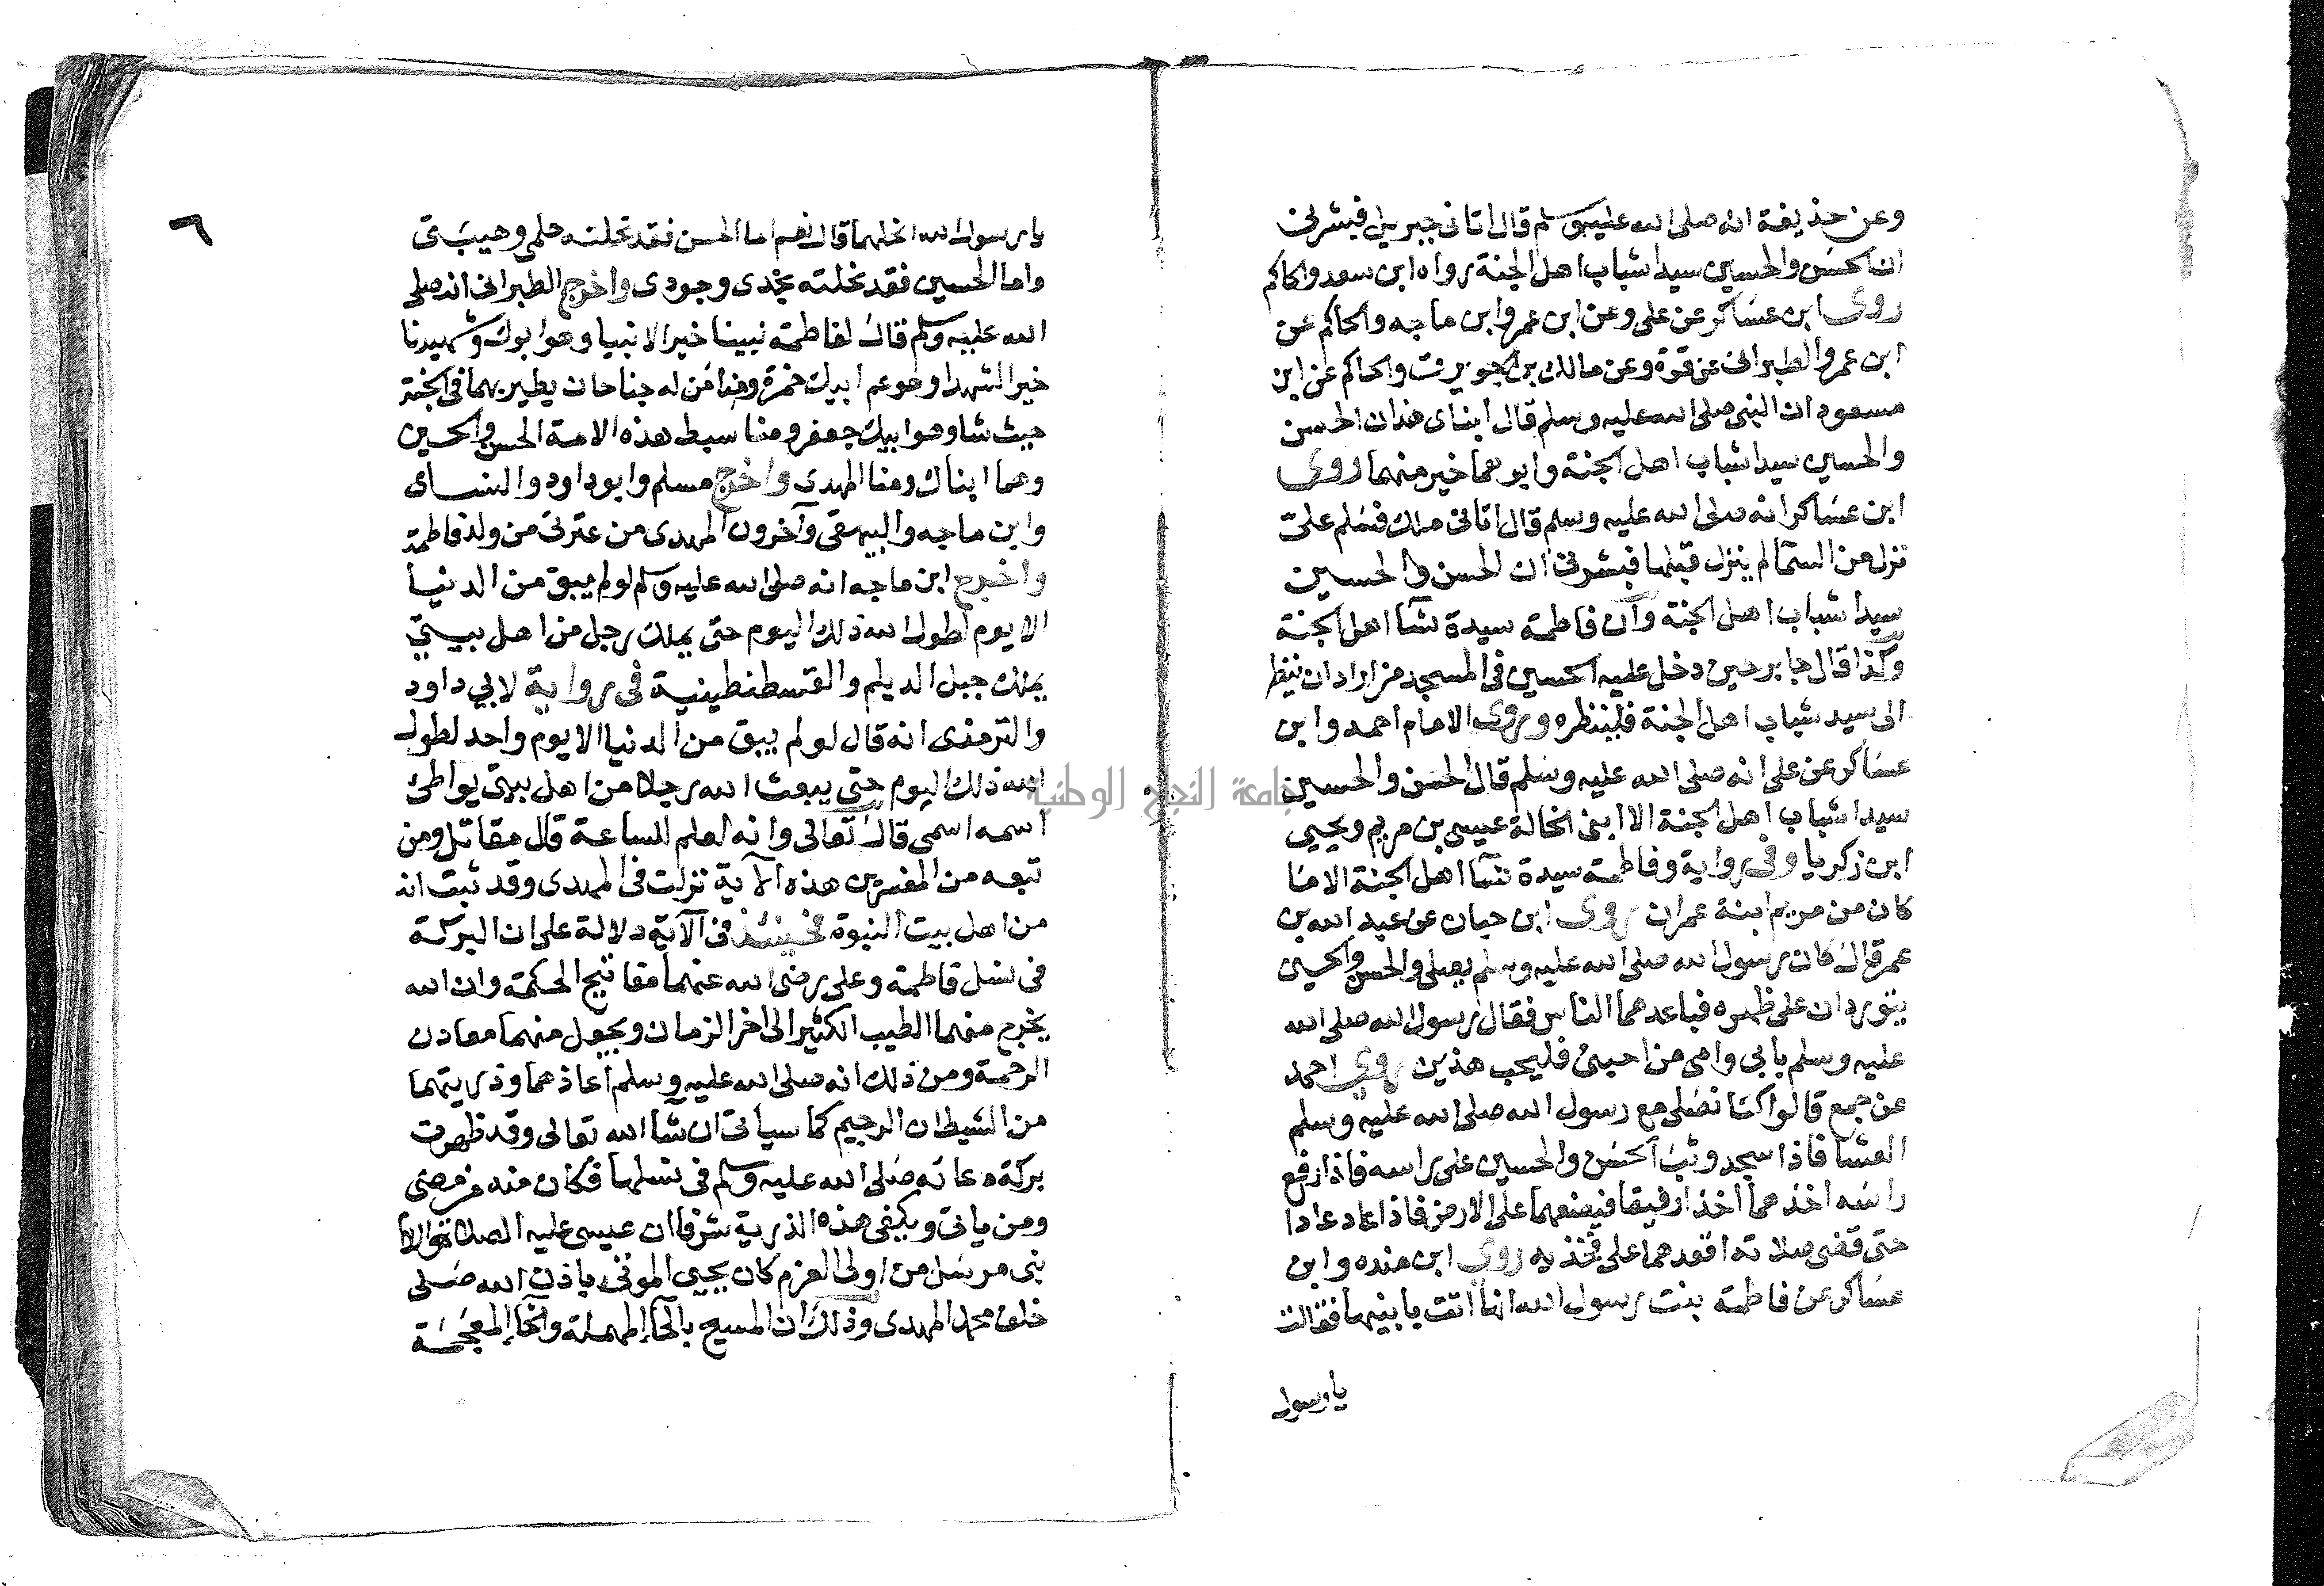 وعن حذيفة انه صلى الله عليه وسلم قال اتانى جبريل فبشرنى
ان الحسن والحسين سيدا شباب اهل الجنة رواه ابن سعد والحاكم
روى ابن عساكر عن على وعن ابن عمر وابن ماجه والحاكم عن
ابن عمر والطبرانى عن قرة وعن مالك بن الحويرث والحاكم عن ابن
مسعود ان النبى صلى الله عليه وسلم قال ابناى هذان الحسن
والحسين سيدا شباب اهل الجنة وابوهما خير منهما روى
ابن عساكر انه صلى الله عليه وسلم قال اتانى ملك فسلم على
نزل من السمآ لم ينزل قبلها فبشرنى ان الحسن والحسين
سيدا شباب اهل الجنة وان فاطمة سيدة نسآ اهل الجنة
وكذا قال جابر حين دخل عليه الحسين فى المسجد من اراد ان ينظر
الى سيد شباب اهل الجنة فلينظره وروى الامام احمد وابن
عساكر عن على انه صلى الله عليه وسلم قال الحسن والحسين
سيدا شباب اهل الجنة الا ابنى الخالة عيسى بن مريم ويحيى
ابن زكريا وفى رواية وفاطمة سيدة نسآ اهل الجنة الا ما
كان من مريم ابنة عمران روى ابن حبان عن عبد الله بن
عمر قال كان رسول الله صلى الله عليه وسلم يصلى والحسن والحسين
يتوردان على ظهره فباعدهما الناس فقال رسول الله صلى الله
عليه وسلم بابى وامى من احبنى فليحب هذين روى احمد
عن جمع قالوا كنا نصلى مع رسول الله صلى الله عليه وسلم
العشا فاذا سجد وثب الحسن والحسين على راسه فاذا رفع
راسه اخذهما اخذا رفيقا فيضعهما على الارض فاذا عاد عادا
حتى قضى صلاته اقعدهما على فخذيه روى ابن منده وابن
عساكر عن فاطمة بنت رسول الله انها اتت بابنيها فقالت
يا رسول
٦
يا رسول الله انحلهما قال نعم اما الحسن فقد نحلته حلمى وهيبتى
واما الحسين فقد نحلته نجدى وجودى واخرج الطبرانى انه صلى
الله عليه وسلم قال لفاطمة نبينا خير الانبيا وهو ابوك وشهيدنا
خير الشهدا وهو عم ابيك حمزة ومنا من له جناحان يطير بهما فى الجنة
حيث شا وهو ابيك جعفر ومنا سبط هذه الامة الحسن والحسين
وهما ابناك ومنا المهدى واخرج مسلم وابو داود والنساى
وابن ماجه والبيهقى وآخرون المهدى من عترتى من ولد فاطمة
واخرج ابن ماجه انه صلى الله عليه وسلم لو لم يبق من الدنيا
الا يوم لطول الله ذلك اليوم حتى يملك رجل من اهل بيتى
يملك جبل الديلم والقسطنطينية فى رواية لابي داود
والترمذى انه قال لو لم يبق من الدنيا الا يوم واحد لطول
الله ذلك اليوم حتى يبعث الله رجلا من اهل بيتى يواطئ
اسمه اسمى قال تعالى وانه لعلم للساعة قال مقاتل ومن
تبعه من المفسرين هذه الآية نزلت فى المهدى وقد ثبت انه
من اهل بيت النبوة فحينئذ فى الآية دلالة على ان البركة
فى نسل فاطمة وعلى رضى الله عنهما مفاتيح الحكمة وان الله
يخرج منهما الطيب الكثير الى اخر الزمان ويجعل منهما معادن
الرحمة ومن ذلك انه صلى الله عليه وسلم اعاذهما وذريتهما
من الشيطان الرجيم كما سياتى ان شآ الله تعالى وقد ظهرت
بركة دعائه صلى الله عليه وسلم فى نسلها فكان منه من مضى
ومن ياتى ويكفى هذه الذرية شرفا ان عيسى عليه الصلاة
نبى مرسل من اولى العزم كان يحيى الموتى باذن الله صلى
خلف محمد المهدى وذلك ان المسيح بالحآ المهملة والخآ المعجمة
جامعة النجاح الوطنية